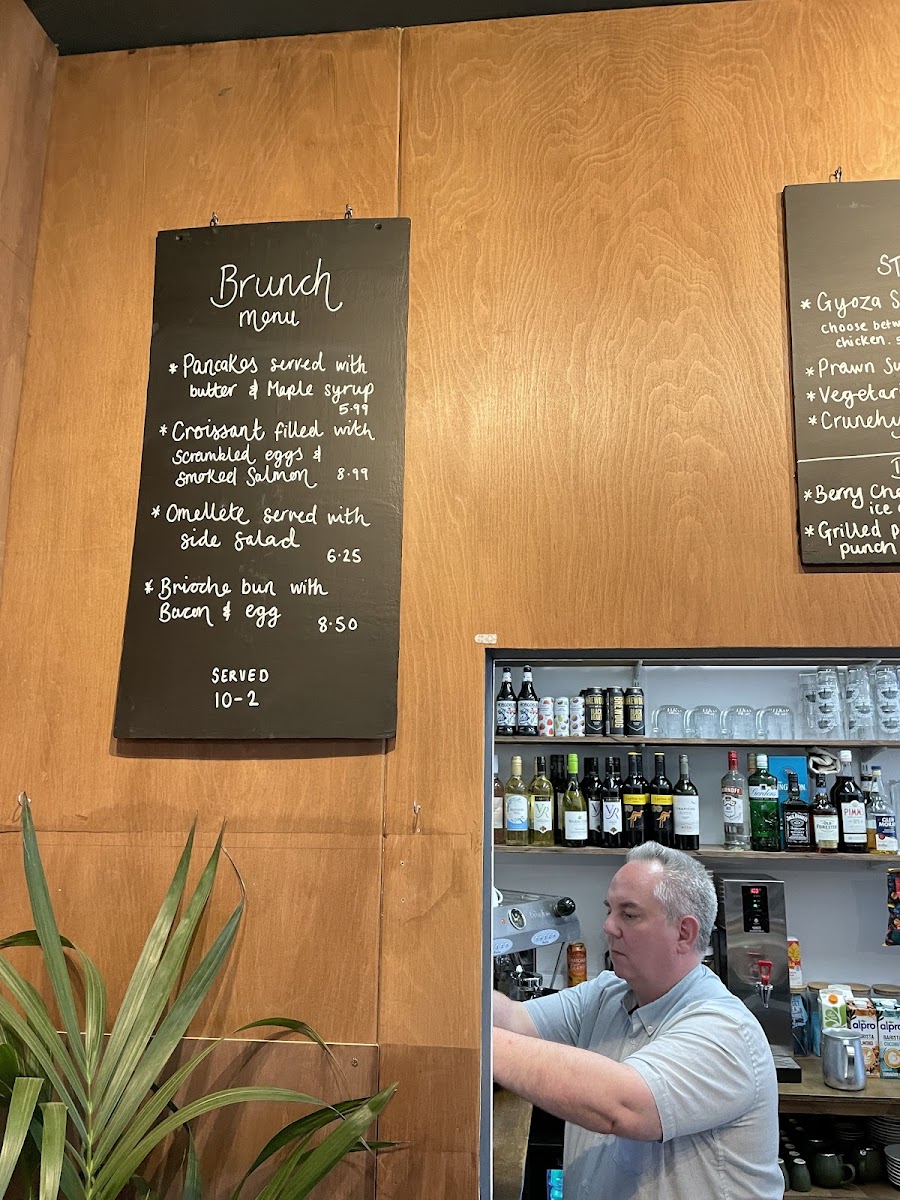 Brunch
menu
* Pancakes served with
butter & Maple syrup
5.99
* Croissant filled with
scrambled eggs &
smoked Salmon 8.99
* Omellete served with
side salad
6.25
* Brioche bun with
Bacon & egg
8.50
SERVED
10-2
ST
* Gyoza S
choose betw
chicken. 5
* Prawn Su
* Vegetar
* Crunchy
* Berry Che
ice c
* Grilled p
punch
Gordon's
PIMM
alpro
alpro